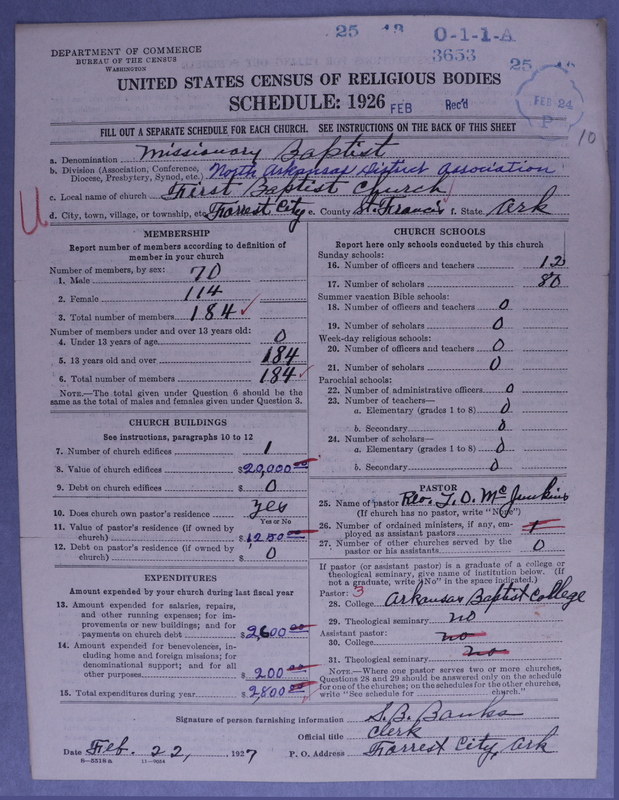 25 13 0-1-1-A
3653 25
DEPARTMENT OF COMMERCE
BUREAU OF THE CENSUS
WASHINGTON
UNITED STATES CENSUS OF RELIGIOUS BODIES
SCHEDULE: 1926 FEB Rec'd
FEB 24
P
10
FILL OUT A SEPARATE SCHEDULE FOR EACH CHURCH. SEE INSTRUCTIONS ON THE BACK OF THIS SHEET
a. Denomination Missionary Baptist
b. Division (Association, Conference, Diocese, Presbytery, Synod, etc.) North Arkansas District Association
c. Local name of church First Baptist Church
d. City, town, village, or township, etc. Forrest City e. County St. Francis f. State Ark
U
MEMBERSHIP
Report number of members according to definition of
member in your church
Number of members, by sex:
1. Male 70
2. Female 114
3. Total number of members 184
Number of members under and over 13 years old:
4. Under 13 years of age 0
5. 13 years old and over 184
6. Total number of members 184
NOTE.—The total given under Question 6 should be the
same as the total of males and females given under Question 3.
CHURCH BUILDINGS
See instructions, paragraphs 10 to 12
7. Number of church edifices 1
8. Value of church edifices $20,000.00
9. Debt on church edifices $ 0
10. Does church own pastor's residence? yes
Yes or No
11. Value of pastor's residence (if owned by
church) $1250.00
12. Debt on pastor's residence (if owned by
church) $ 0
EXPENDITURES
Amount expended by your church during last fiscal year
13. Amount expended for salaries, repairs,
and other running expenses; for im-
provements or new buildings; and for
payments on church debt $2,600.00
14. Amount expended for benevolences, in-
cluding home and foreign missions; for
denominational support; and for all
other purposes $200.00
15. Total expenditures during year $2,800.00
CHURCH SCHOOLS
Report here only schools conducted by this church
Sunday schools:
16. Number of officers and teachers 12
17. Number of scholars 80
Summer vacation Bible schools:
18. Number of officers and teachers 0
19. Number of scholars 0
Week-day religious schools:
20. Number of officers and teachers 0
21. Number of scholars 0
Parochial schools:
22. Number of administrative officers 0
23. Number of teachers—
a. Elementary (grades 1 to 8) 0
b. Secondary 0
24. Number of scholars—
a. Elementary (grades 1 to 8) 0
b. Secondary 0
PASTOR
25. Name of pastor Rev. T. D. McJunkins
(If church has no pastor, write "None")
26. Number of ordained ministers, if any, em-
ployed as assistant pastors 1
27. Number of other churches served by the
pastor or his assistants 0
If pastor (or assistant pastor) is a graduate of a college or
theological seminary, give name of institution below. (If
not a graduate, write "No" in the space indicated.)
Pastor: 3
28. College Arkansas Baptist College
29. Theological seminary no
Assistant pastor:
30. College no
31. Theological seminary no
NOTE.—Where one pastor serves two or more churches,
Questions 28 and 29 should be answered only on the schedule
for one of the churches; on the schedules for the other churches,
write "See schedule for church."
Signature of person furnishing information S. B. Banks
Official title Clerk
Date Feb. 22, 1927 P. O. Address Forrest City, Ark
8—5318a 11—9084